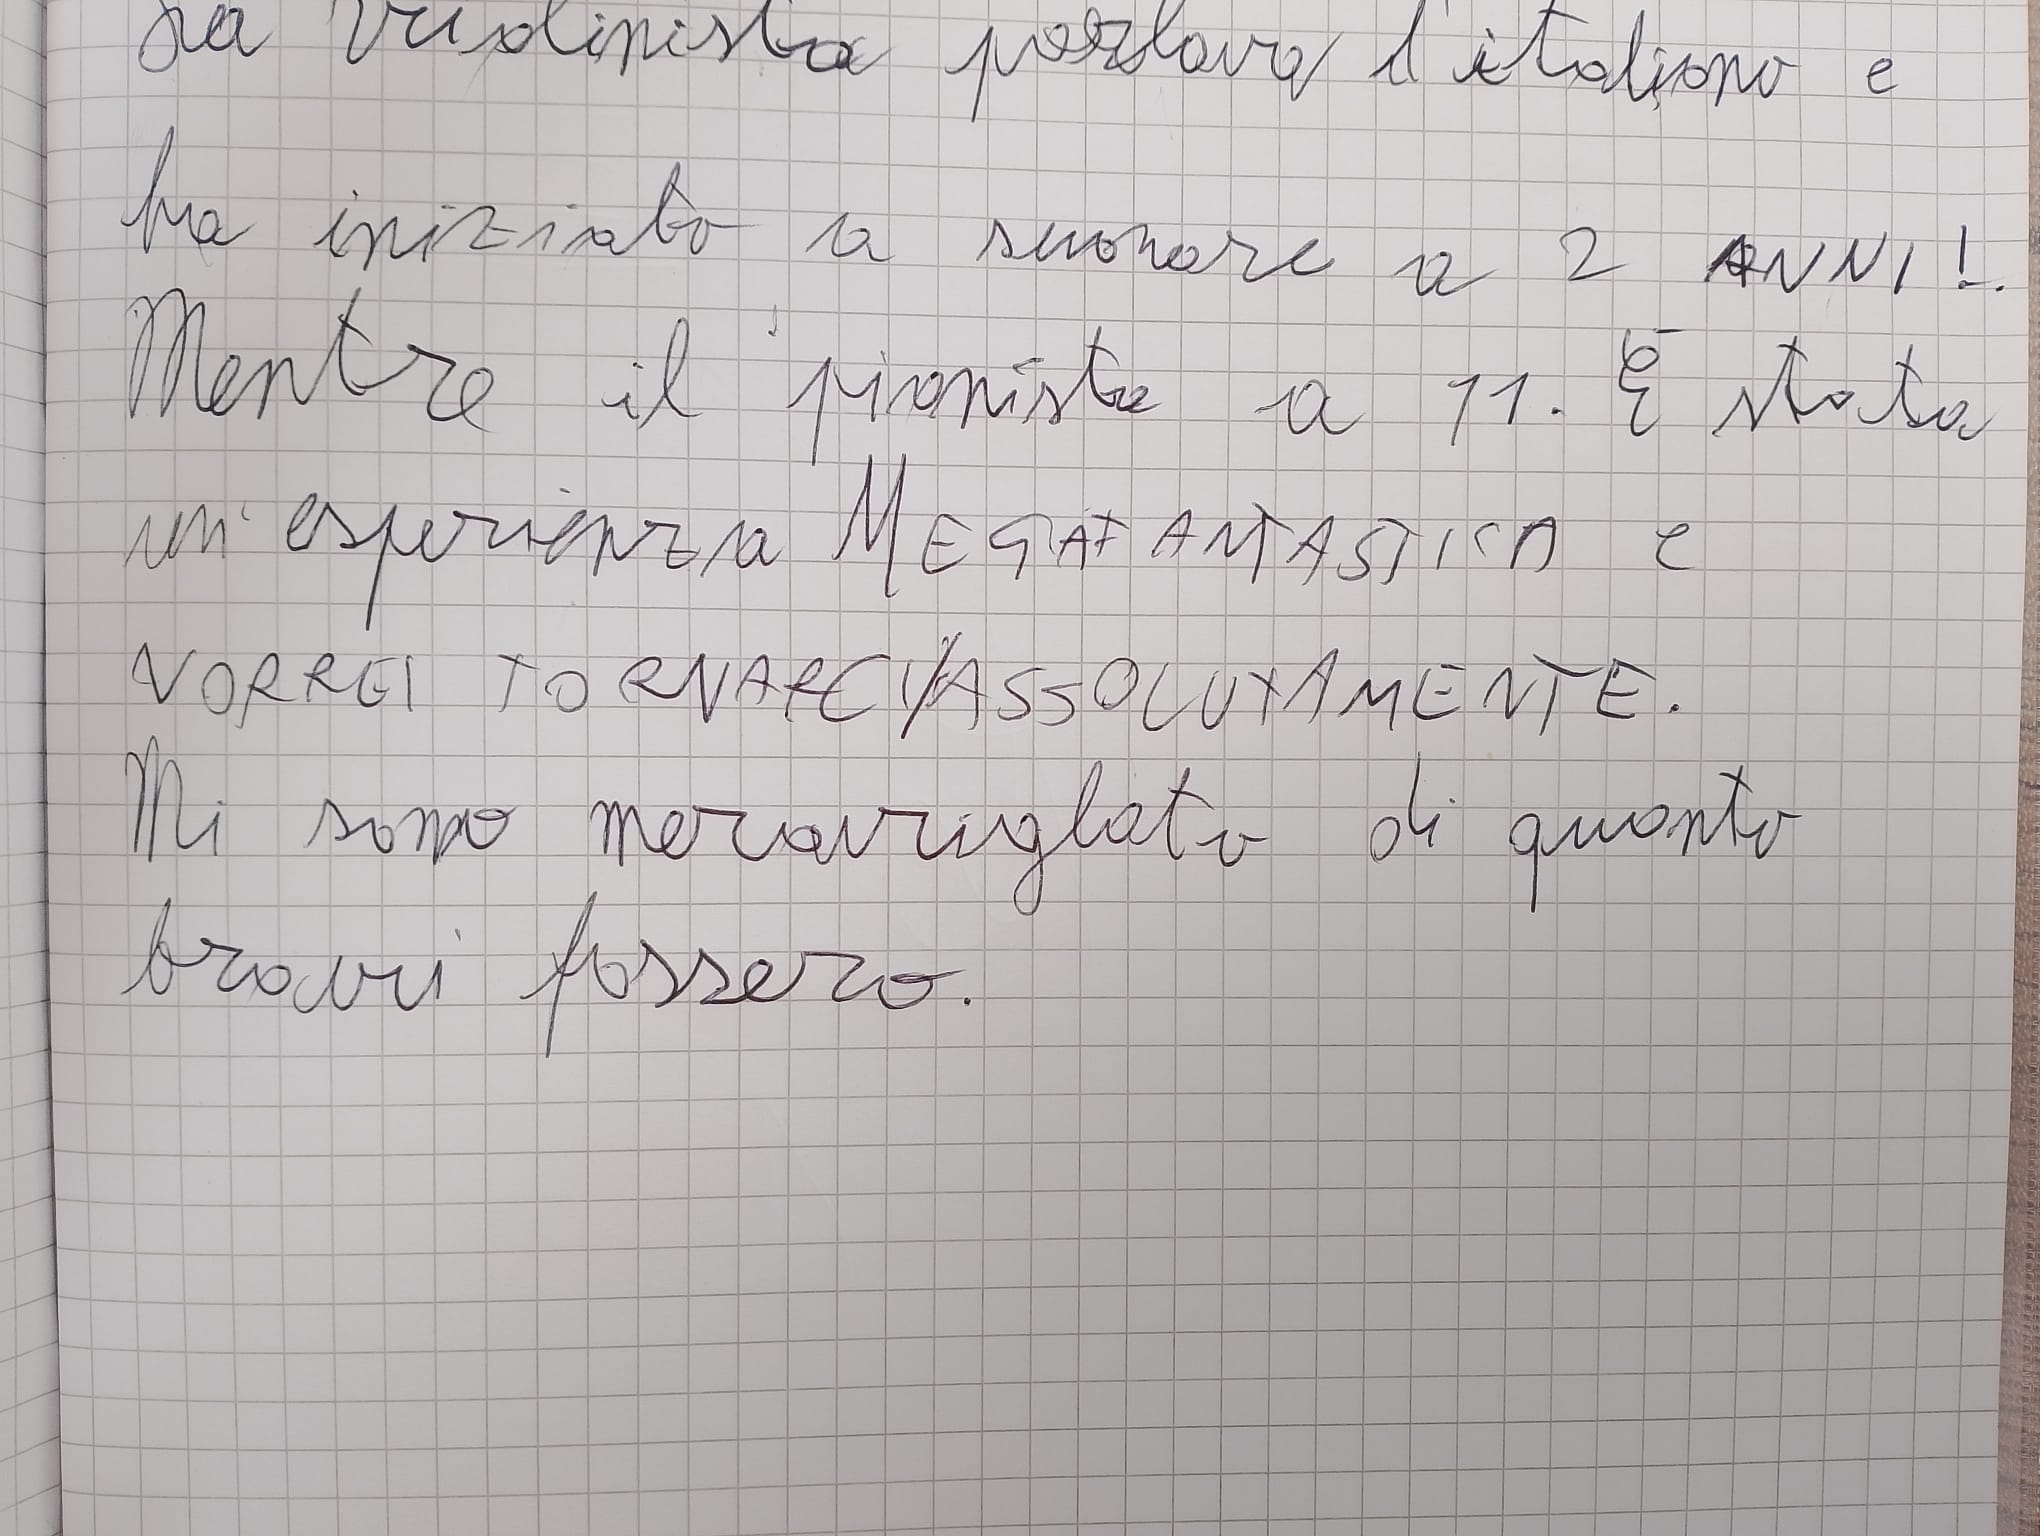 La violinista parlava l'italiano e
ha iniziato a suonare a 2 ANNI!.
Mentre il pianista a 11. È stata
un'esperienza MEGAFANTASTICA e
VORREI TORNARCI ASSOLUTAMENTE.
Mi sono meraviglato di quanto
bravi fossero.